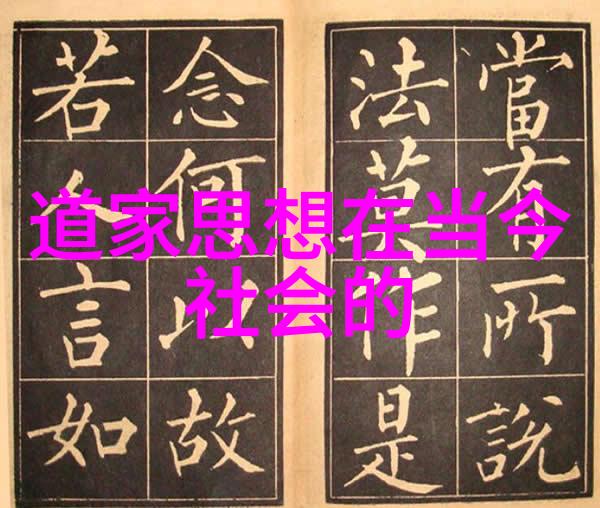 道家思想在当今
社会的
當有所說
法莫作是
念何以故
若人言如